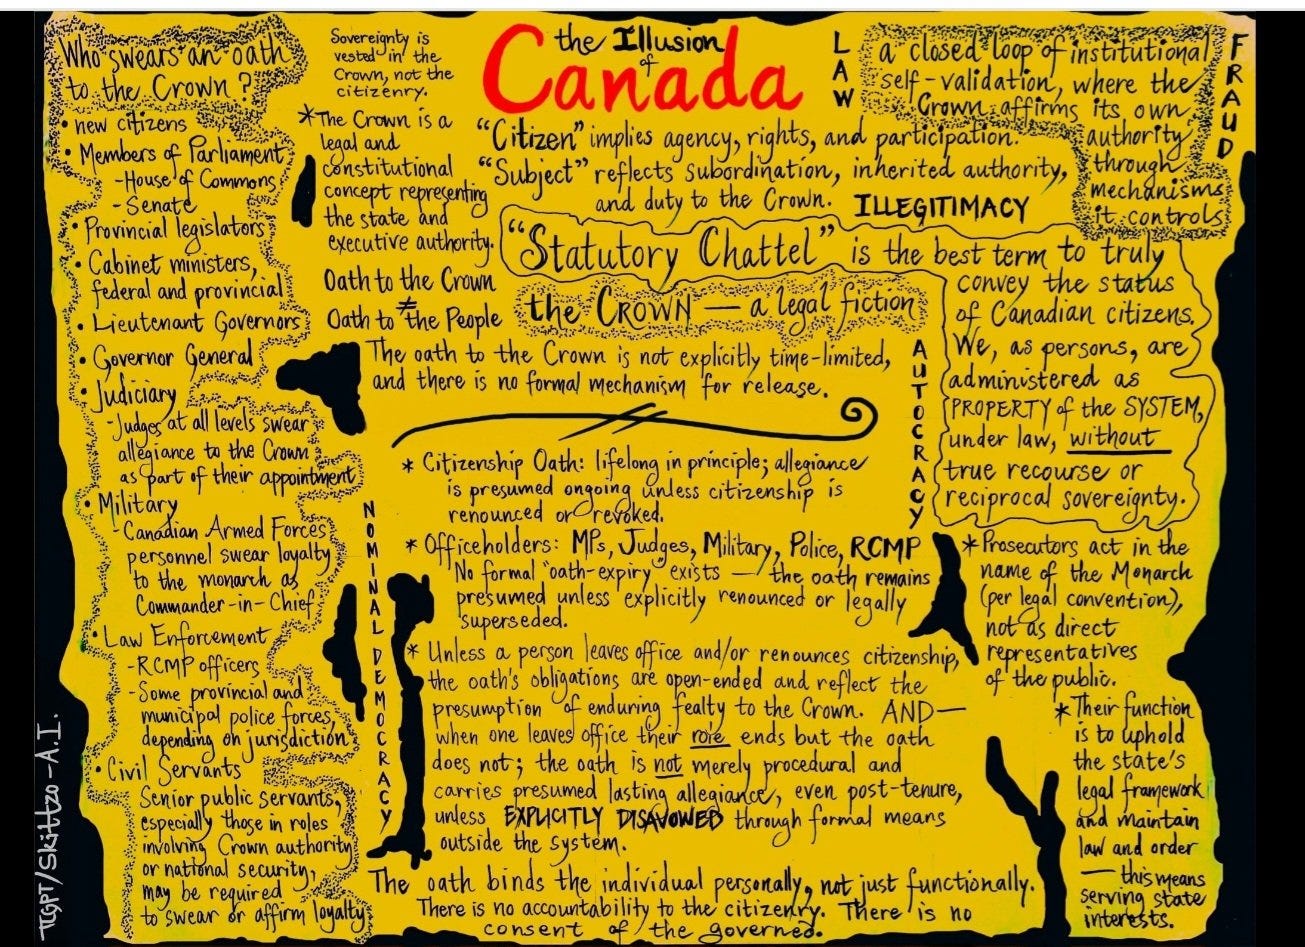 Who swears an oath
to the Crown?
• new citizens
• Members of Parliament
- House of Commons
- Senate
• Provincial legislators
• Cabinet ministers,
federal and provincial
• Lieutenant Governors
• Governor General
• Judiciary
- Judges at all levels swear
allegiance to the Crown
as part of their appointment
• Military
- Canadian Armed Forces
personnel swear loyalty
to the monarch as
Commander-in-Chief
• Law Enforcement
- RCMP officers
- Some provincial and
municipal police forces,
depending on jurisdiction
• Civil Servants
Senior public servants,
especially those in roles
involving Crown authority
or national security,
may be required
to swear or affirm loyalty
Sovereignty is
vested in the
Crown, not the
citizenry.
* The Crown is a
legal and
constitutional
concept representing
the state and
executive authority.
Oath to the Crown
≠
Oath to the People
the Illusion
of
Canada
LAW
"Citizen" implies agency, rights, and participation.
"Subject" reflects subordination, inherited authority,
and duty to the Crown.
ILLEGITIMACY
a closed loop of institutional
self-validation, where the
Crown affirms its own
authority
through
mechanisms
it controls
FRAUD
"Statutory Chattel" is the best term to truly
convey the status
of Canadian citizens.
We, as persons, are
administered as
PROPERTY of the SYSTEM,
under law, without
true recourse or
reciprocal sovereignty.
the CROWN — a legal fiction
The oath to the Crown is not explicitly time-limited,
and there is no formal mechanism for release.
AUTOCRACY
* Citizenship Oath: lifelong in principle; allegiance
is presumed ongoing unless citizenship is
renounced or revoked.
* Officeholders: MPs, Judges, Military, Police, RCMP
No formal "oath-expiry" exists — the oath remains
presumed unless explicitly renounced or legally
superseded.
* Unless a person leaves office and/or renounces citizenship,
the oath's obligations are open-ended and reflect the
presumption of enduring fealty to the Crown. AND—
when one leaves office their role ends but the oath
does not; the oath is not merely procedural and
carries presumed lasting allegiance, even post-tenure,
unless EXPLICITLY DISAVOWED through formal means
outside the system.
The oath binds the individual personally, not just functionally.
There is no accountability to the citizenry. There is no
consent of the governed.
NOMINAL DEMOCRACY
* Prosecutors act in the
name of the Monarch
(per legal convention),
not as direct
representatives
of the public.
* Their function
is to uphold
the state's
legal framework
and maintain
law and order
— this means
serving state
interests.